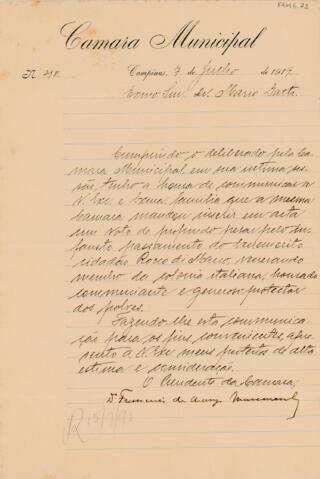 Camara Municipal
Campinas, 7 de Julho de 1917.
Exmo Snr. Dr. Mario Gatti.
Cumprindo o deliberado pela Ca-
mara Municipal em sua ultima ses-
são, tenho a honra de communicar a
V. Exc. e Exma. familia que a mesma
Camara mandou inserir em acta
um voto de profundo pesar pelo in-
fausto passamento do benemerito
cidadão Rocco de Marco, venerando
membro da colonia italiana, honrado
commerciante e generoso protector
dos pobres.
Fazendo-lhe esta communica-
ção para os fins convenientes, apre-
sento a V. Exc. meus protestos de alta
estima e consideração.
O Presidente da Camara,
Dr. Francisco de Araujo Mascarenhas
R 15/7/91